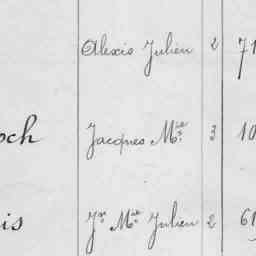 Alexis Julien 2 71
och Jacques Mie 3 10
is Jn Mie Julien 2 61